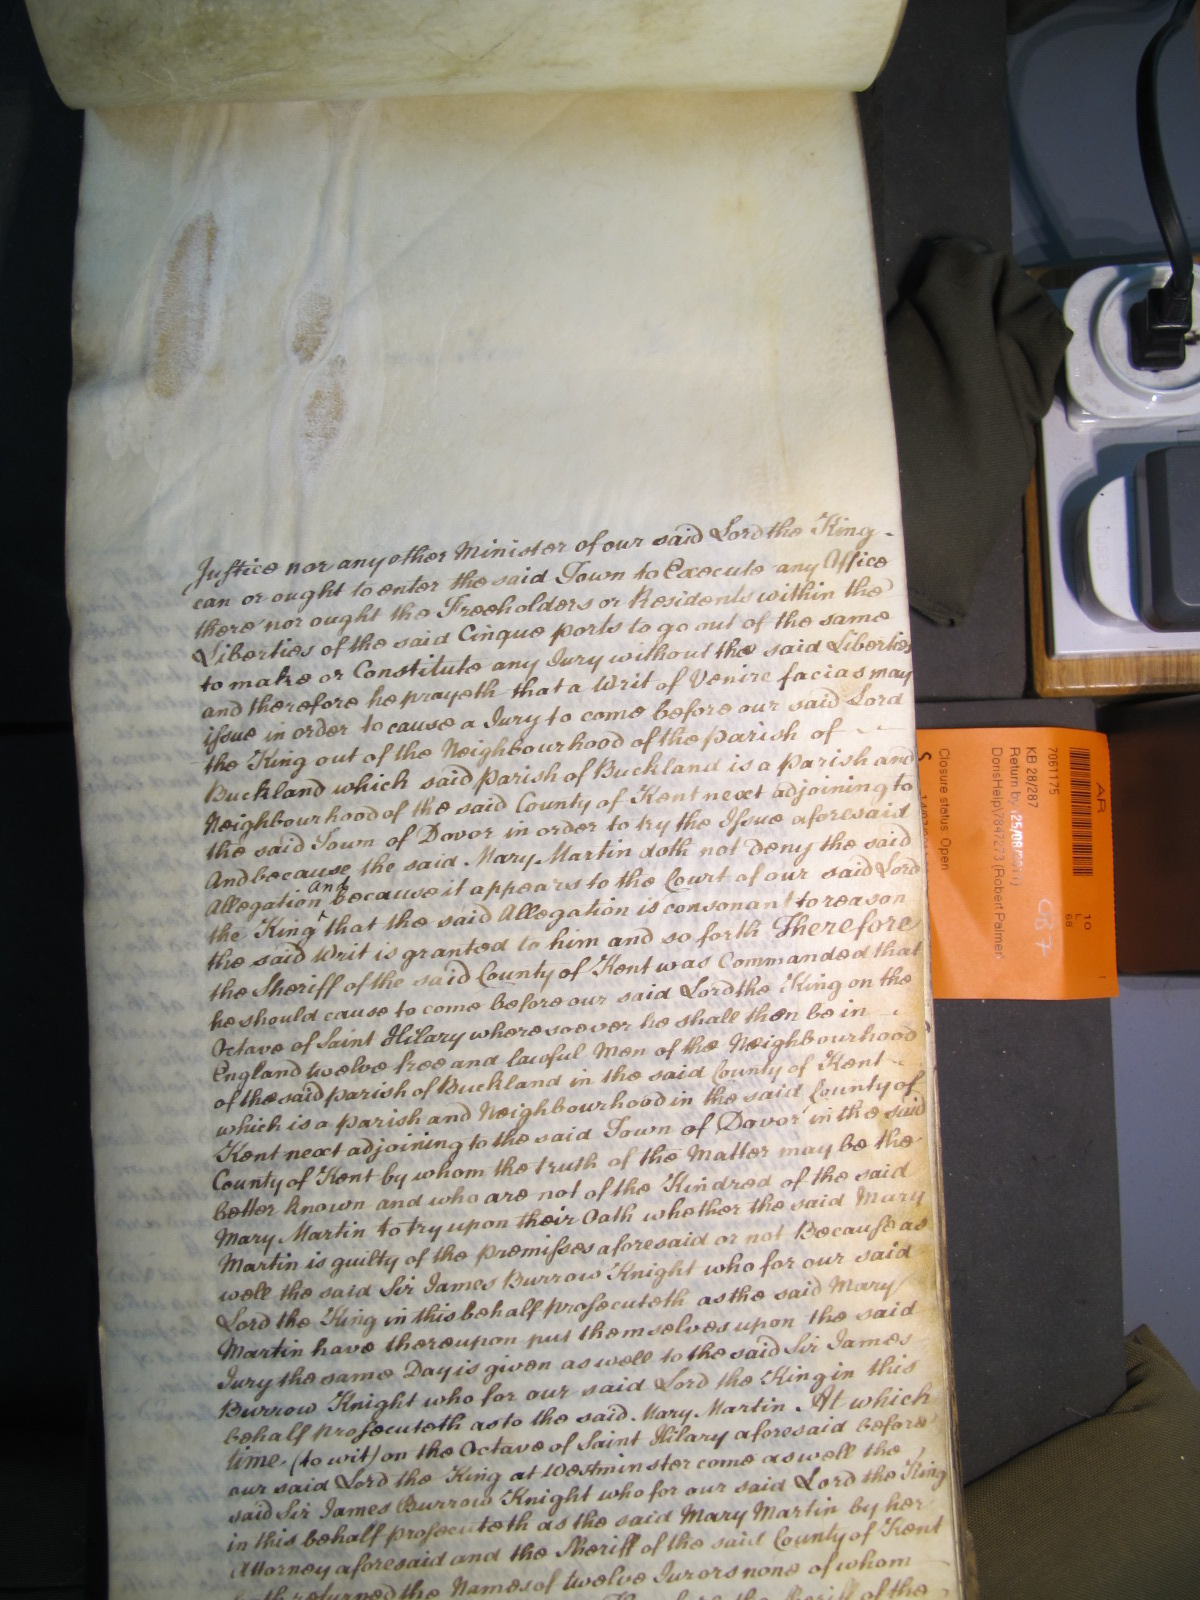 Justice nor any other Minister of our said Lord the King -
can or ought to enter the said Town to Execute any Office
there nor ought the Freeholders or Residents within the
Liberties of the said Cinque ports to go out of the same
to make or Constitute any Jury without the said Liberties
and therefore he prayeth that a Writ of Venire facias may
issue in order to cause a Jury to come before our said Lord
the King out of the Neighbourhood of the parish of
Buckland which said parish of Buckland is a parish and
Neighbourhood of the said County of Kent next adjoining to
the said Town of Dovor in order to try the Issue aforesaid
And because the said Mary Martin doth not deny the said
Allegation And because it appears to the Court of our said Lord
the King that the said Allegation is consonant to reason
the said Writ is granted to him and so forth Therefore
the Sheriff of the said County of Kent was Commanded that
he should cause to come before our said Lord the King on the
Octave of Saint Hilary wheresoever he shall then be in
England twelve free and lawful Men of the Neighbourhood
of the said parish of Buckland in the said County of Kent
which is a parish and Neighbourhood in the said County of
Kent next adjoining to the said Town of Dovor in the said
County of Kent by whom the truth of the Matter may be the
better known and who are not of the Kindred of the said
Mary Martin to try upon their Oath whether the said Mary
Martin is guilty of the premisses aforesaid or not Because as
well the said Sir James Burrow Knight who for our said
Lord the King in this behalf prosecuteth as the said Mary
Martin have thereupon put themselves upon the said
Jury the same Day is given as well to the said Sir James
Burrow Knight who for our said Lord the King in this
behalf prosecuteth as to the said Mary Martin At which
time (to wit) on the Octave of Saint Hilary aforesaid before
our said Lord the King at Westminster come as well the
said Sir James Burrow Knight who for our said Lord the King
in this behalf prosecuteth as the said Mary Martin by her
Attorney aforesaid and the Sheriff of the said County of Kent
hath returned the Names of twelve Jurors none of whom
the Sheriff of the
AR
7061175
KB 28/287
Return by
DorisHelp\7847273 (Robert Palmer)
Closure status: Open
10
L
68